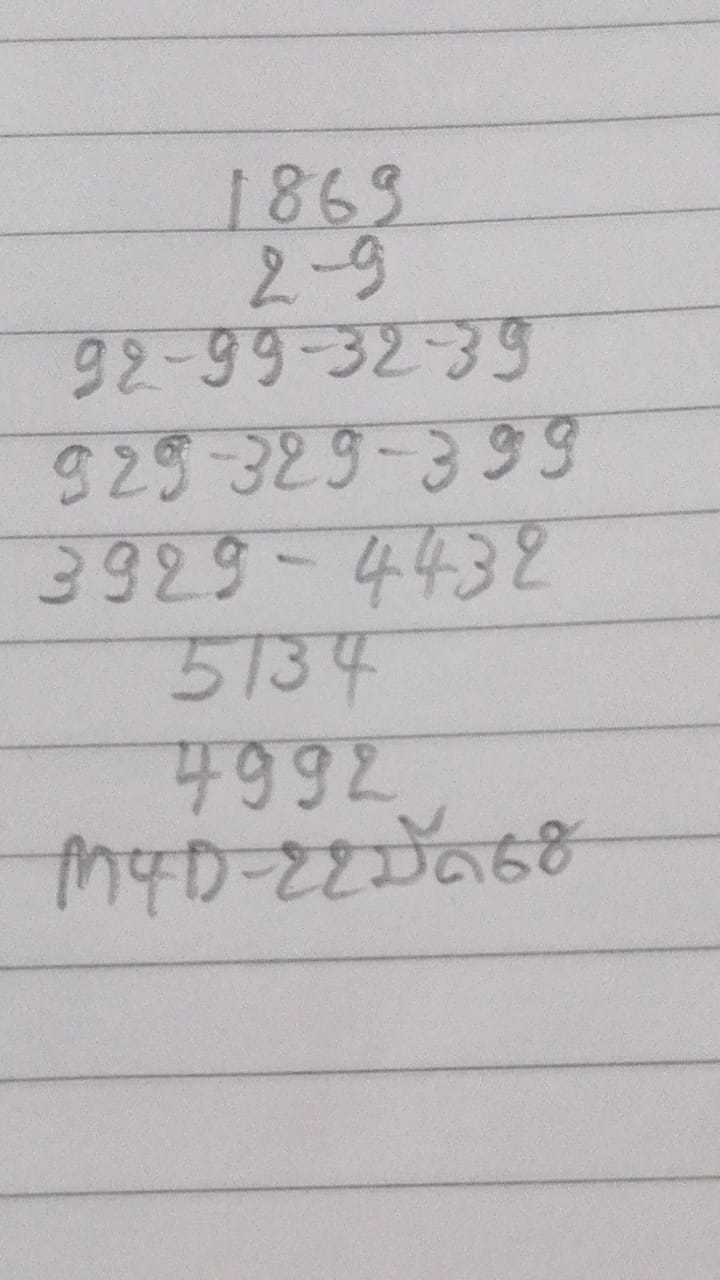 1869
2-9
92-99-32-39
929-329-399
3929-4432
5134
4992
M4D-22มัด68